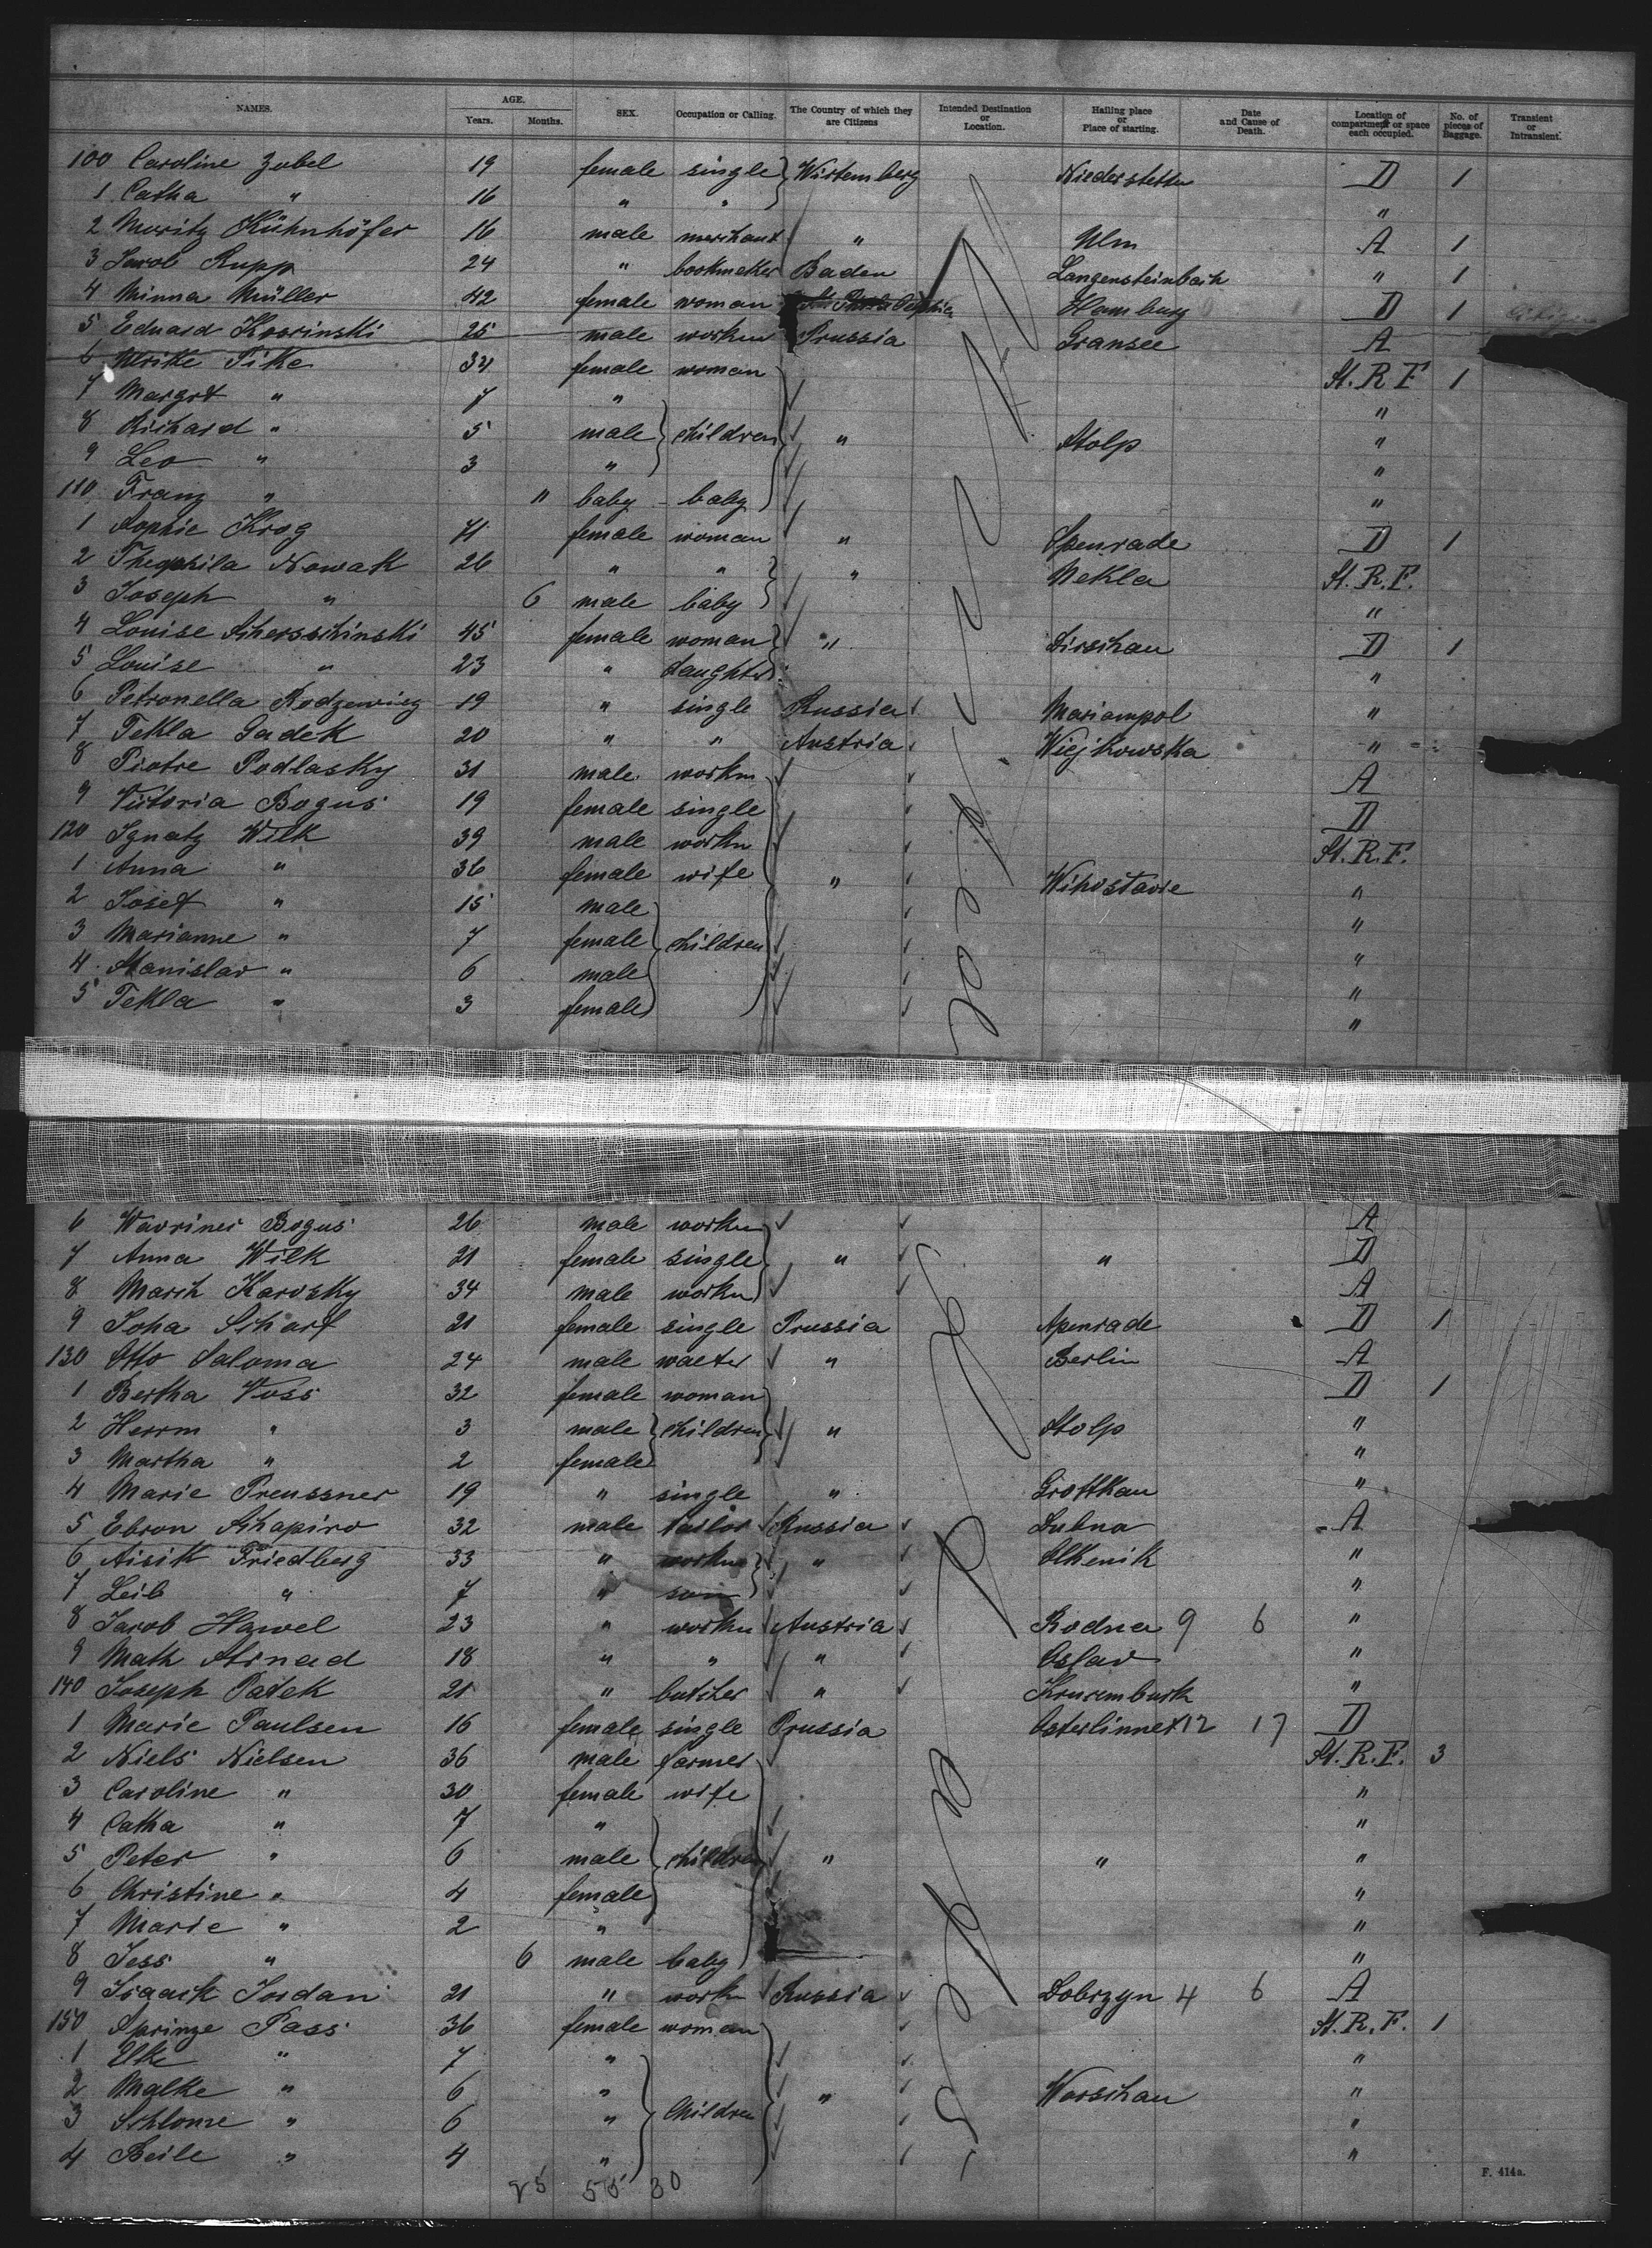 NAMES. AGE. Years. Months. SEX. Occupation or Calling. The Country of which they are Citizens Intended Destination or Location. Hailing place or Place of starting. Date and Cause of Death. Location of compartment or space each occupied. No. of pieces of Baggage. Transient or Intransient.
100 Caroline Zobel 19 female single Wirtemberg Niederstetten D 1
1 Catha " 16 " " "
2 Moritz Kühnhöfer 16 male merchant " Ulm A 1
3 Jacob Rupp 24 " bookmaker Baden Langensteinbach " 1
4 Minna Müller 42 female woman Hamburg D 1
5 Eduard Kosrinski 25 male workm Prussia Gransee A
6 Ulrike Pike 34 female woman St. R F 1
7 Margrt " 7 " "
8 Richard " 5 male children " Stolp "
9 Leo " 3 " "
110 Franz " 11 baby baby "
1 Sophie Krog 71 female woman " Apenrade D 1
2 Theophila Nowak 26 " " " Nekla St. R. F.
3 Joseph " 6 male baby "
4 Louise Scherschinski 45 female woman " Dirschau D 1
5 Louise " 23 " daughter "
6 Petronella Rodzewicz 19 " single Russia Mariampol "
7 Tekla Gadek 20 " " Austria Wiejkowska "
8 Piotre Podlasky 31 male workm A
9 Victoria Bogus 19 female single D
120 Ignatz Wilk 39 male workm St. R. F.
1 Anna " 36 female wife " "
2 Josef " 15 male "
3 Marianne " 7 female children "
4 Stanislav " 6 male "
5 Tekla " 3 female "
6 Bogus 26 male workm A
7 Anna Wilk 21 female single " " D
8 Karovsky 34 male workm A
9 Joha Scharf 21 female single Prussia Apenrade D 1
130 Otto Saloma 24 male waeter " Berlin A
1 Bertha Voss 32 female woman D 1
2 Herrm " 3 male children " Stolp "
3 Martha " 2 female "
4 Marie Preussner 19 " single " Grottkau "
5 Ebron Schapiro 32 male tailor Russia Dubno A
6 Aisik Friedberg 33 " workm " Olkenik "
7 Leib " 7 " son "
8 Jacob Hawel 23 " workm Austria Rodna 9 6 "
9 Math Strnad 18 " " " Oslav "
140 Joseph Patek 21 " butcher " "
1 Marie Paulsen 16 female single Prussia Osterlinnet 12 17 D
2 Niels Nielsen 36 male farmer St. R. F. 3
3 Caroline " 30 female wife "
4 Catha " 7 " "
5 Peter " 6 male children " " "
6 Christine " 4 female "
7 Marie " 2 " "
8 Jess " 6 male baby "
9 Isaack Jordan 21 " workm Russia Dobrzyn 4 6 A
150 Sprinze Pass 36 female woman St. R. F. 1
1 Elke " 7 " "
2 Malke " 6 " Children " Warschau "
3 Schlome " 6 " "
4 Beile " 4 " "
25 55 30
F. 414a.